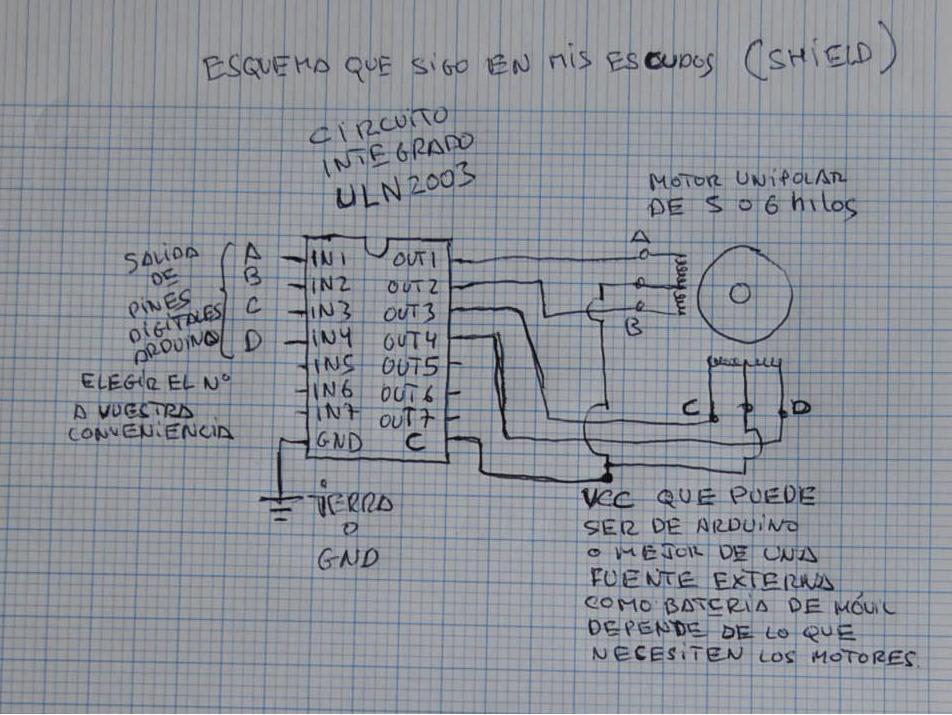 ESQUEMA QUE SIGO EN MIS ESCUDOS (SHIELD)
CIRCUITO
INTEGRADO
ULN2003
MOTOR UNIPOLAR
DE 5 o 6 hilos
SALIDA
DE
PINES
DIGITALES
ARDUINO
A
B
C
D
ELEGIR EL Nº
A VUESTRA
CONVENIENCIA
IN1 OUT1
IN2 OUT2
IN3 OUT3
IN4 OUT4
IN5 OUT5
IN6 OUT6
IN7 OUT7
GND C
A
B
C D
TIERRA
O
GND
VCC QUE PUEDE
SER DE ARDUINO
O MEJOR DE UNA
FUENTE EXTERNA
COMO BATERIA DE MÓVIL
DEPENDE DE LO QUE
NECESITEN LOS MOTORES.